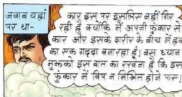 जवाब यहां
पर था-
कार इस पर इसलिए नहीं गिर
रही है क्योंकि मैं अपनी फुंकार से
कार और इसके शरीर के बीच में हवा
का एक गद्दा बना रहा हूँ। बस ध्यान
मुझको इस बात का रखना है कि इस
फुंकार में विष न मिश्रित होने पाए।